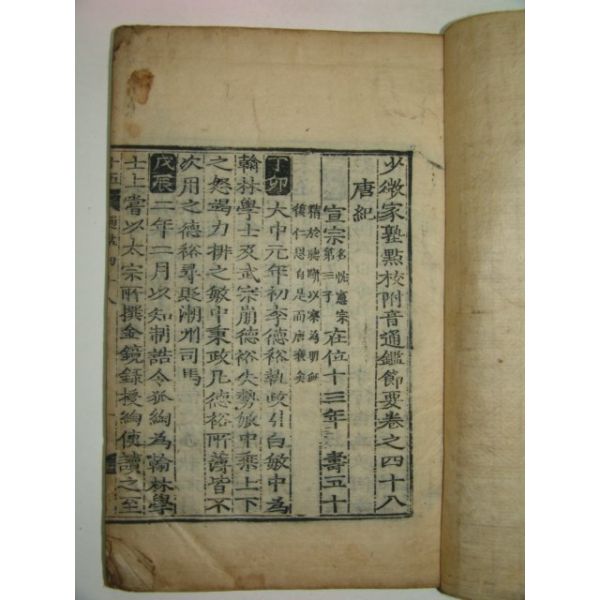 少微家塾點校附音通鑑節要卷之四十八
唐紀
宣宗 名忱憲宗第十三子 在位十三年 壽五十
精於聽斷以察為明無復仁恩自是而唐衰矣
丁卯 大中元年初李德裕執政引白敏中為
翰林學士及武宗崩德裕失勢敏中乘上下
之怨竭力排之敏中秉政凡德裕所善皆不
次用之德裕尋貶潮州司馬
戊辰 二年二月以知制誥令狐綯為翰林學
士上嘗以太宗所撰金鏡錄授綯使讀之至